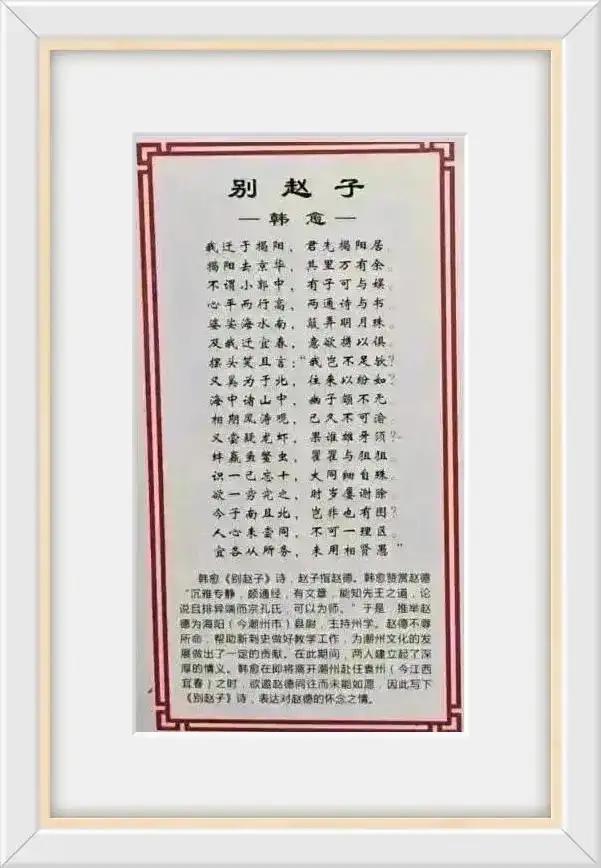 别赵子
—韩愈—
我迁于揭阳，君先揭阳居。
揭阳去京华，其里万有余。
不谓小郭中，有子可与娱。
心平而行高，两通诗与书。
婆娑海水南，簸弄明月珠。
及我迁宜春，意欲携以俱。
摆头笑且言：“我岂不足欤？
又奚为于北，往来以纷如？
海中诸山中，幽子颇不无。
相期风涛观，已久不可渝。
又尝疑龙虾，果谁雄牙须？
蚌蠃鱼鳖虫，瞿瞿与狙狙。
识一已忘十，大同细自殊。
欲一穷究之，时岁屡谢除。
今子南且北，岂非也有图？
人心未尝同，不可一理区。
宜各从所务，未用相贤愚”
韩愈《别赵子》诗，赵子指赵德。韩愈赞赏赵德
“沉雅专静，颇通经，有文章，能知先王之道，论
说且排异端而宗孔氏，可以为师。”于是，推举赵
德为海阳（今潮州市）县尉，主持州学。赵德不辱
所命，帮助新刺史做好教学工作，为潮州文化的发
展做出了一定的贡献。在此期间，两人建立起了深
厚的情义。韩愈在即将离开潮州赴任袁州（今江西
宜春）之时，欲邀赵德同往而未能如愿，因此写下
《别赵子》诗，表达对赵德的怀念之情。